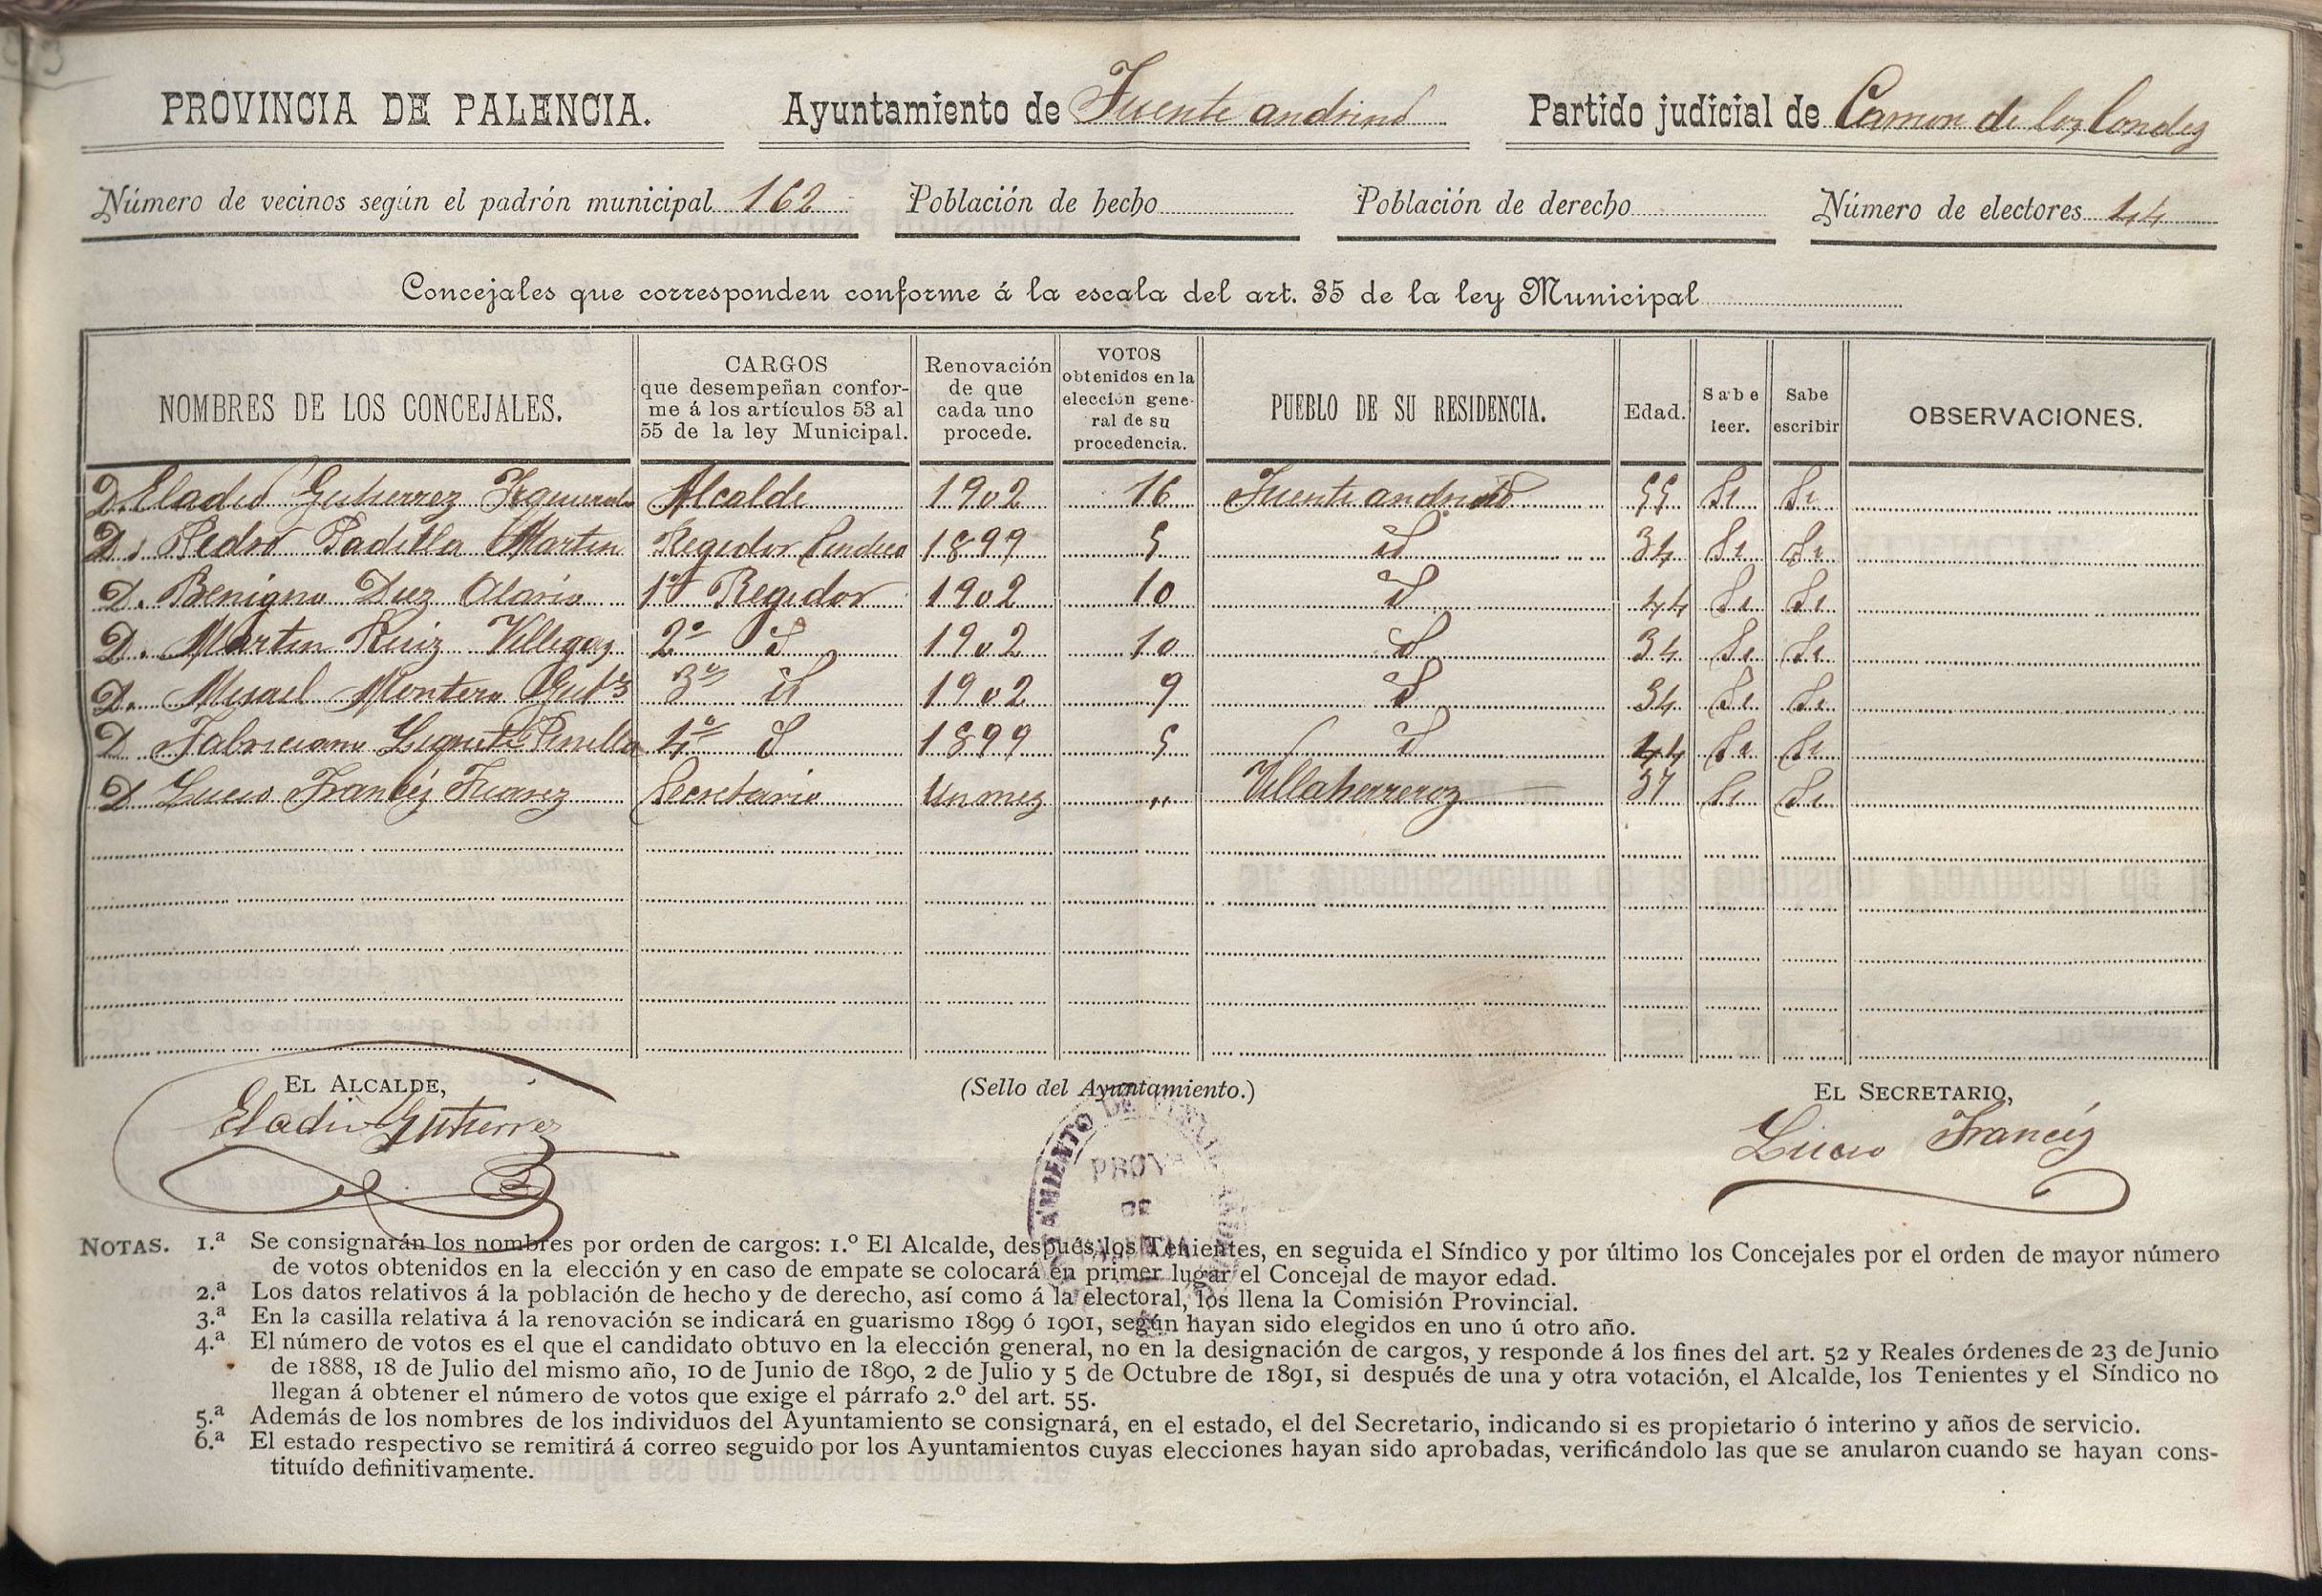 PROVINCIA DE PALENCIA. Ayuntamiento de Fuente andrino Partido judicial de Carrion de los Condes
Número de vecinos según el padrón municipal 162 Población de hecho Población de derecho Número de electores 44
Concejales que corresponden conforme á la escala del art. 35 de la ley Municipal
NOMBRES DE LOS CONCEJALES. CARGOS que desempeñan confor- me á los artículos 53 al 55 de la ley Municipal. Renovación de que cada uno procede. VOTOS obtenidos en la elección gene- ral de su procedencia. PUEBLO DE SU RESIDENCIA. Edad. Sabe leer. Sabe escribir OBSERVACIONES.
D. Eladio Gutierrez Alcalde 1902 16 Fuente andrino 55 Si Si
D. Pedro Padilla Martin Regidor Sindico 1899 5 id 34 Si Si
D. Benigno Diez Alario 1er Regidor 1902 10 id 44 Si Si
D. Martin Ruiz Villegas 2º id 1902 10 id 34 Si Si
D. Misael Montero Gutz 3er id 1902 9 id 34 Si Si
D Fabriciano 4º id 1899 5 id 44 Si Si
D Lucio Francés Juarez Secretario Un mes " Villaherreros 37 Si Si
EL ALCALDE, (Sello del Ayuntamiento.) EL SECRETARIO,
Eladio Gutierrez
Lucio Francés
AYUNTAMIENTO DE
PROVA
DE
NOTAS. 1.ª Se consignarán los nombres por orden de cargos: 1.º El Alcalde, después los Tenientes, en seguida el Síndico y por último los Concejales por el orden de mayor número
de votos obtenidos en la elección y en caso de empate se colocará en primer lugar el Concejal de mayor edad.
2.ª Los datos relativos á la población de hecho y de derecho, así como á la electoral, los llena la Comisión Provincial.
3.ª En la casilla relativa á la renovación se indicará en guarismo 1899 ó 1901, según hayan sido elegidos en uno ú otro año.
4.ª El número de votos es el que el candidato obtuvo en la elección general, no en la designación de cargos, y responde á los fines del art. 52 y Reales órdenes de 23 de Junio
de 1888, 18 de Julio del mismo año, 10 de Junio de 1890, 2 de Julio y 5 de Octubre de 1891, si después de una y otra votación, el Alcalde, los Tenientes y el Síndico no
llegan á obtener el número de votos que exige el párrafo 2.º del art. 55.
5.ª Además de los nombres de los individuos del Ayuntamiento se consignará, en el estado, el del Secretario, indicando si es propietario ó interino y años de servicio.
6.ª El estado respectivo se remitirá á correo seguido por los Ayuntamientos cuyas elecciones hayan sido aprobadas, verificándolo las que se anularon cuando se hayan cons-
tituído definitivamente.